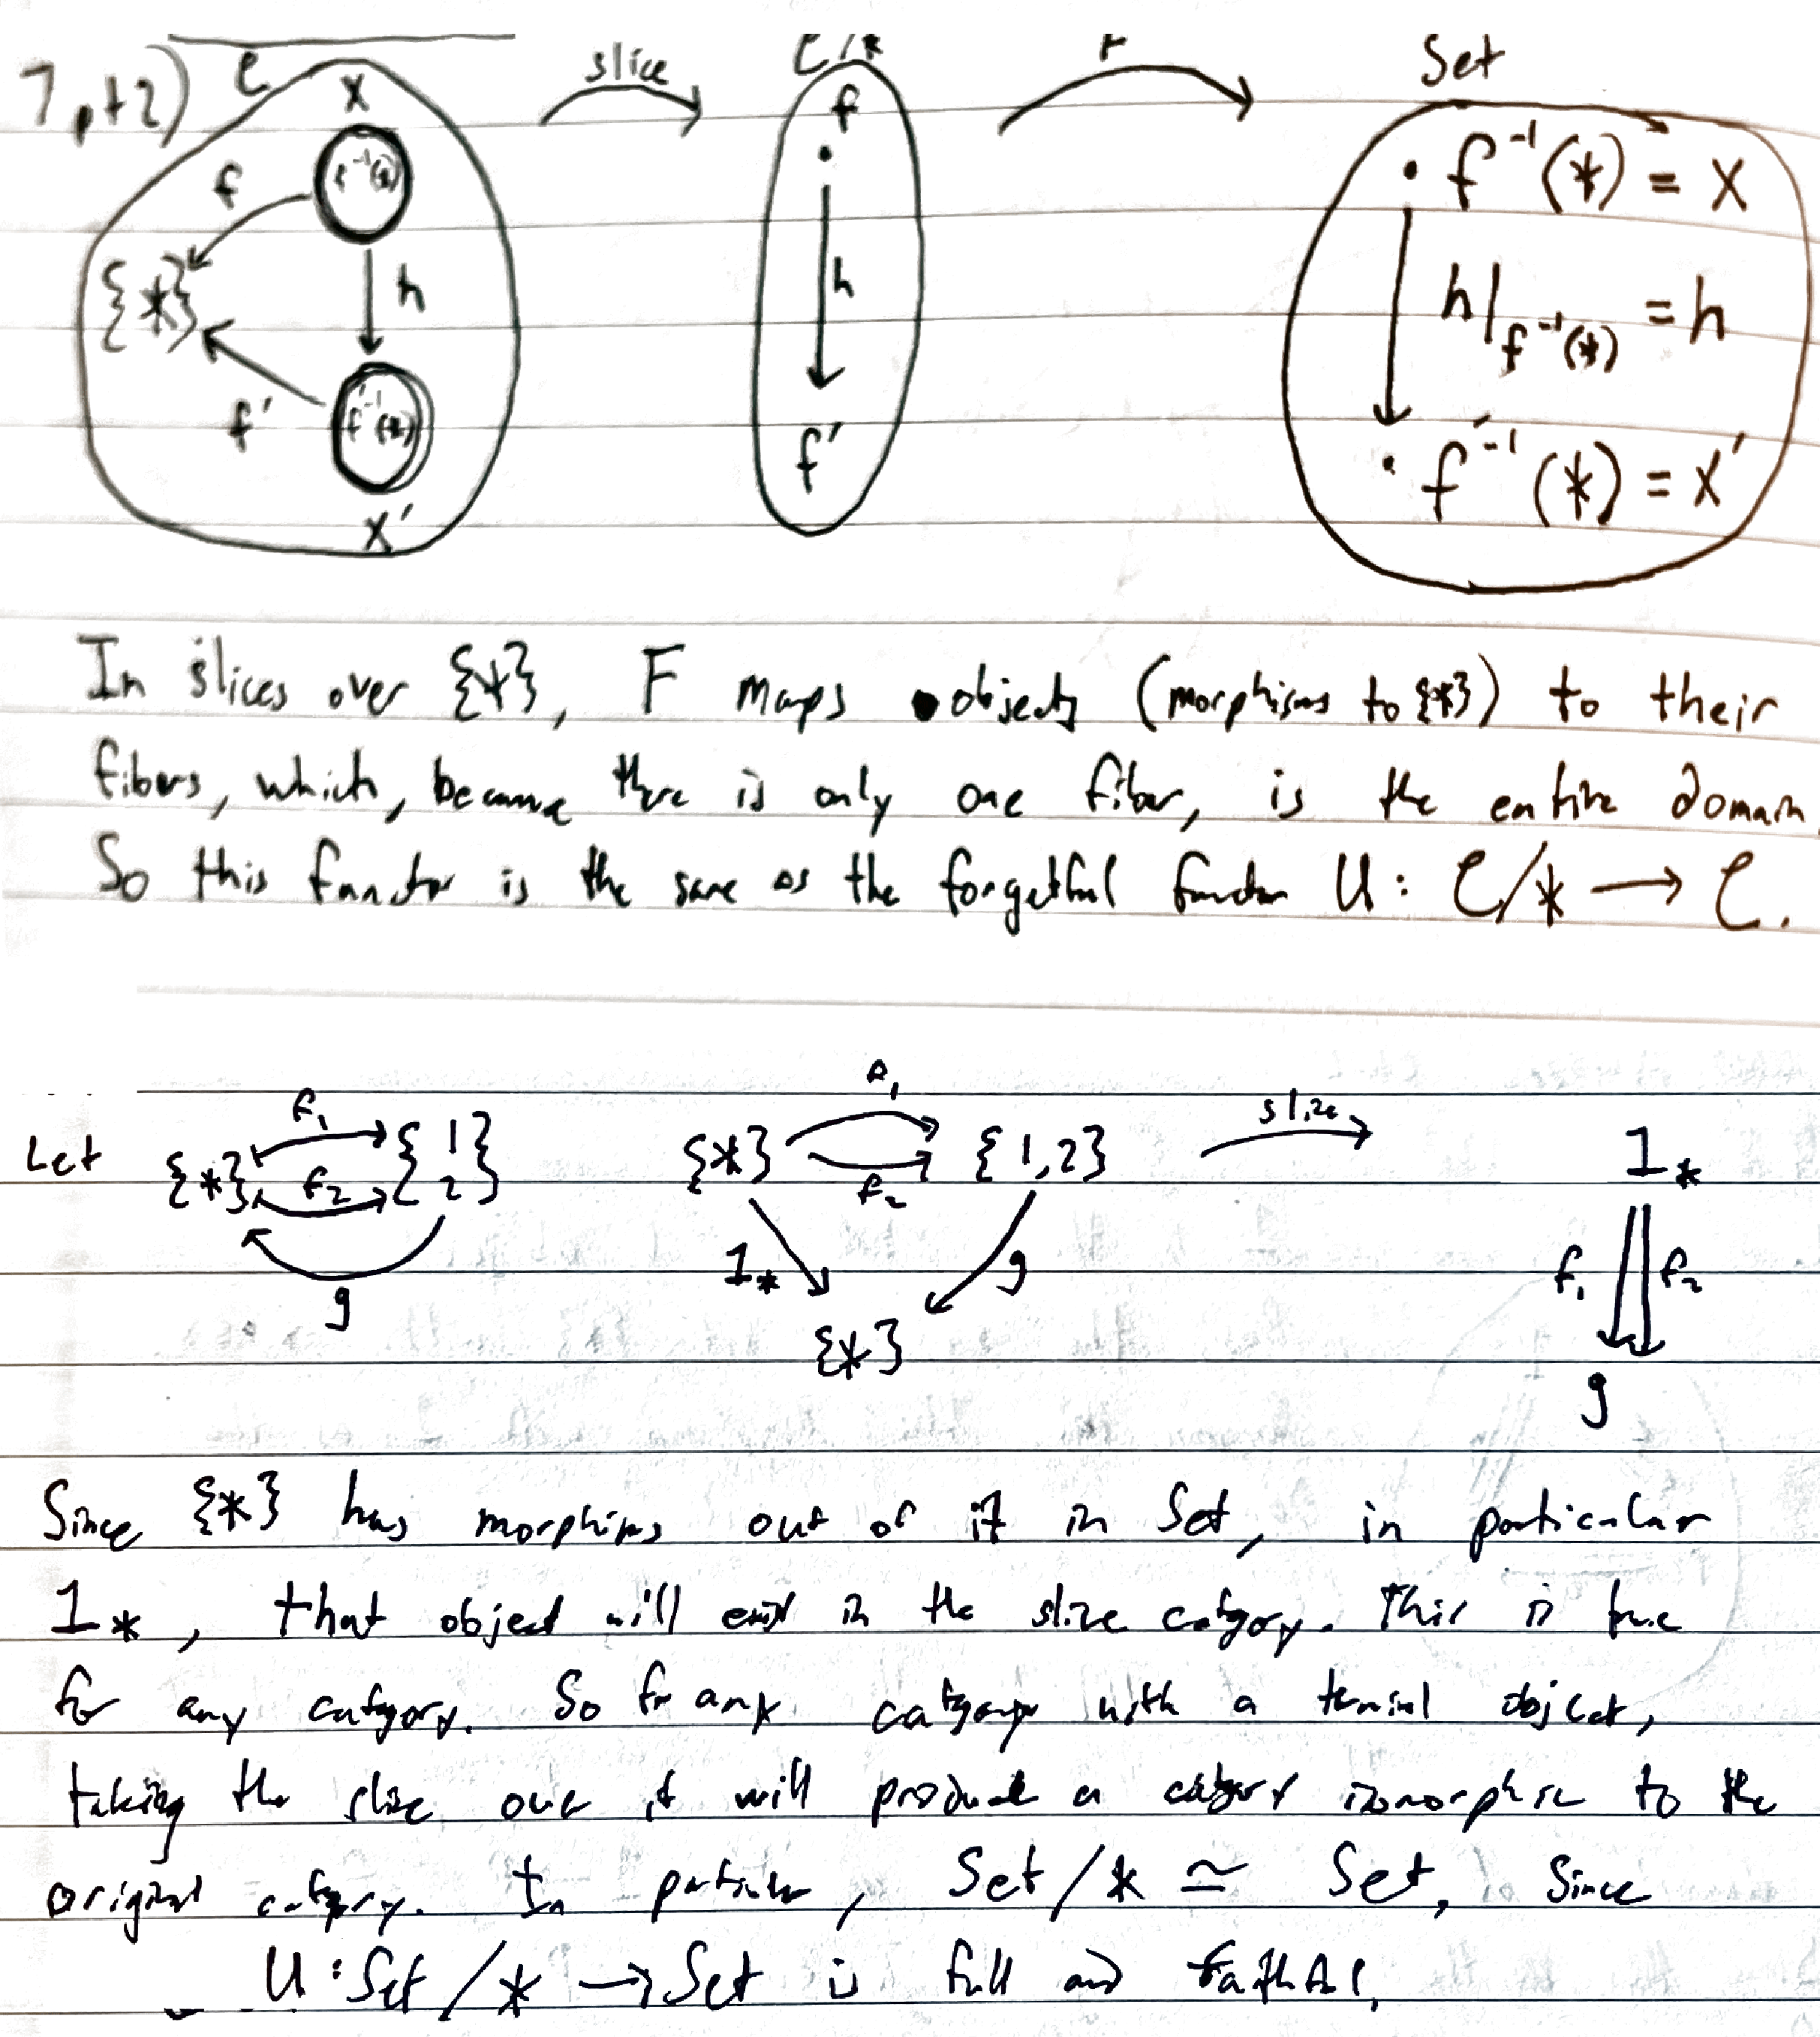 7, pt 2)
C slice C/* F Set
X f
f f⁻¹(*) . . f⁻¹(*) = X
{*} h h h|f⁻¹(*) = h
f' f'⁻¹(*) f' . f'⁻¹(*) = X'
X'
In slices over {*}, F maps objects (morphisms to {*}) to their
fibers, which, because there is only one fiber, is the entire domain.
So this functor is the same as the forgetful functor U: C/* → C.
f₁ f₁ slice
Let {*} {1 2} {*} {1,2} 1*
f₂ f₂
g 1* g f₁ f₂
{*}
g
Since {*} has morphisms out of it in Set, in particular
1*, that object will exist in the slice category. This is true
for any category. So for any category with a terminal object,
taking the slice over it will produce a category isomorphic to the
original category. In particular, Set/* ≃ Set, since
U: Set/* → Set is full and faithful.